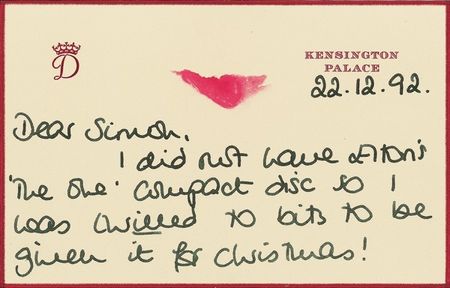 D
KENSINGTON
PALACE
22.12.92.
Dear Simon,
I did not have Elton's
'The One' compact disc so I
was thrilled to bits to be
given it for Christmas!